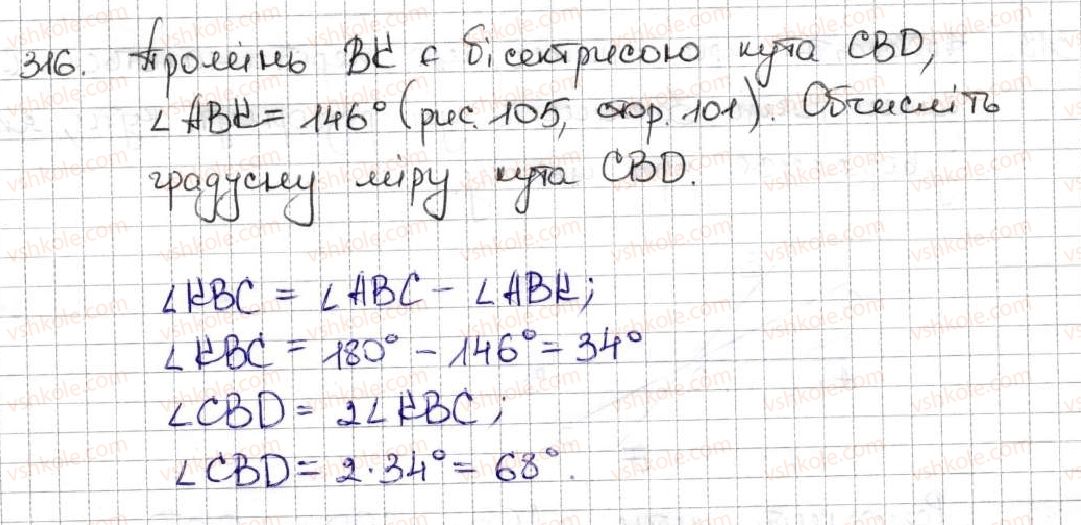 316. Промінь BK є бісектрисою кута CBD,
∠ABK = 146° (рис. 105, стор. 101). Обчисліть
градусну міру кута CBD.
∠KBC = ∠ABC - ∠ABK;
∠KBC = 180° - 146° = 34°
∠CBD = 2∠KBC;
∠CBD = 2 · 34° = 68°.
vshkole.com